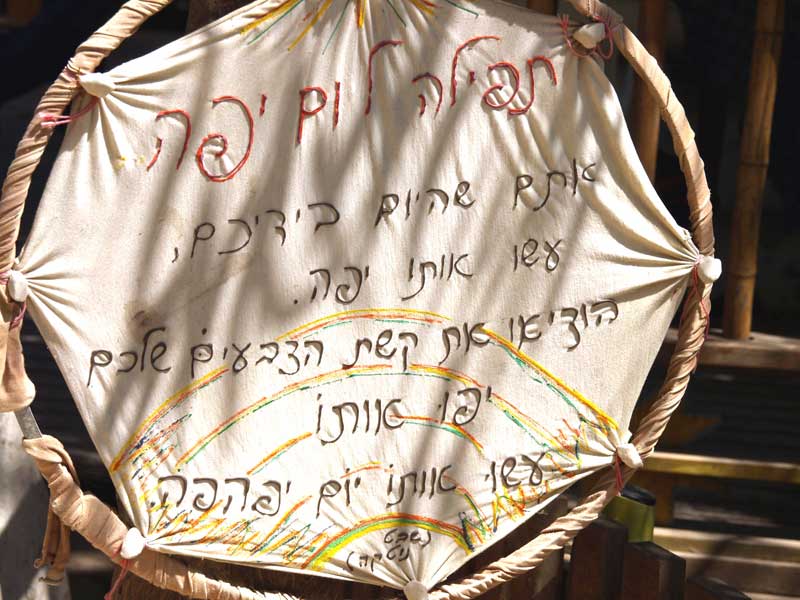 תפילה ליום יפה
אתם שהיום בידיכם,
עשו אותו יפה.
הוציאו את קשת הצבעים שלכם
יפו אותו
עשו אותו יום יפהפה.